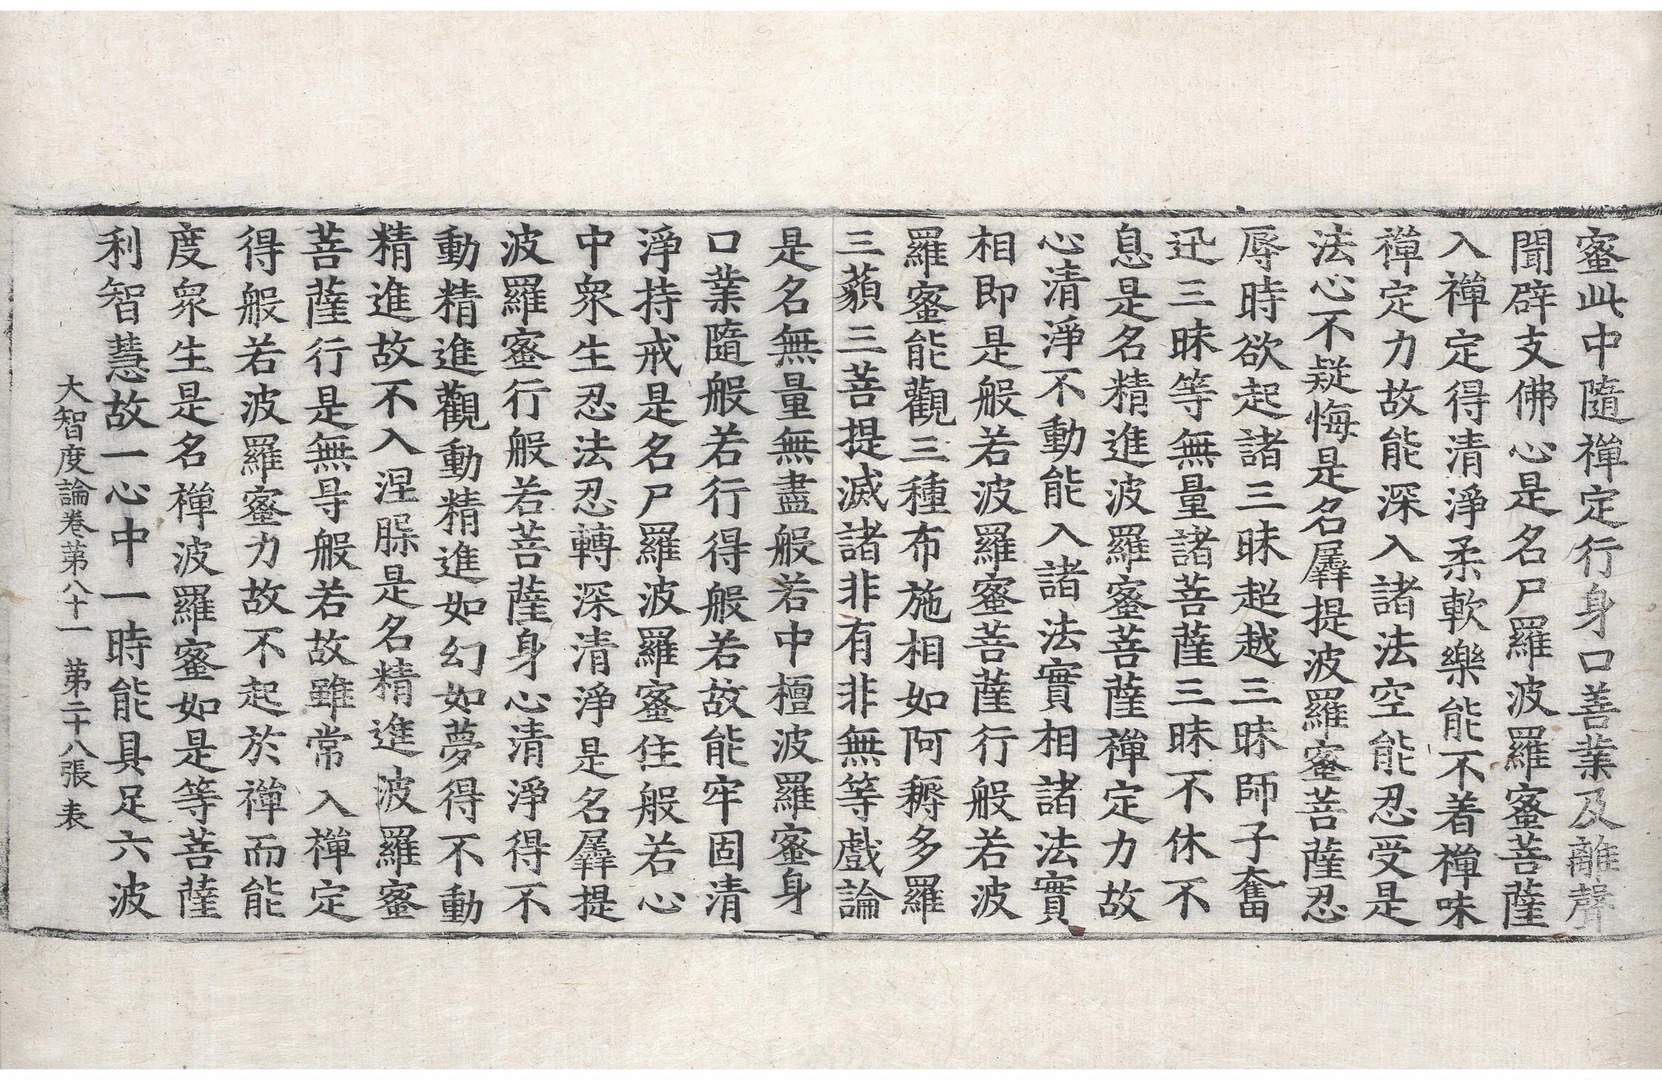 蜜此中隨禪定行身口善業及離聲
聞辟支佛心是名尸羅波羅蜜菩薩
入禪定得清淨柔軟樂能不着禪味
禪定力故能深入諸法空能忍受是
法心不疑悔是名羼提波羅蜜菩薩忍
辱時欲起諸三昧超越三昧師子奮
迅三昧等無量諸菩薩三昧不休不
息是名精進波羅蜜菩薩禪定力故
心清淨不動能入諸法實相諸法實
相即是般若波羅蜜菩薩行般若波
羅蜜能觀三種布施相如阿耨多羅
三藐三菩提滅諸非有非無等戲論
是名無量無盡般若中檀波羅蜜身
口業隨般若行得般若故能牢固清
淨持戒是名尸羅波羅蜜住般若心
中衆生忍法忍轉深清淨是名羼提
波羅蜜行般若菩薩身心清淨得不
動精進觀動精進如幻如夢得不動
精進故不入涅槃是名精進波羅蜜
菩薩行是無㝵般若故雖常入禪定
得般若波羅蜜力故不起於禪而能
度衆生是名禪波羅蜜如是等菩薩
利智慧故一心中一時能具足六波
大智度論卷第八十一 第二十八張 表